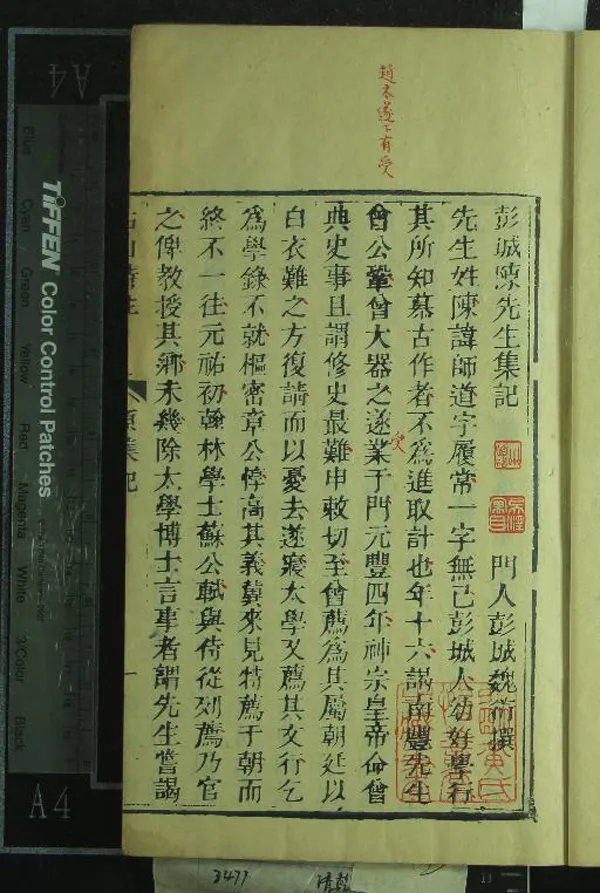 趙本遂下有受
彭城陳先生集記
門人彭城魏衍撰
先生姓陳諱師道字履常一字無已彭城人幼好學行
其所知慕古作者不為進取計也年十六謁南豐先生
曾公鞏曾大器之遂業于門元豐四年神宗皇帝命曾
受
典史事且謂修史最難申敕切至曾薦為其屬朝廷以
白衣難之方復請而以憂去遂寢太學又薦其文行乞
為學錄不就樞密章公惇高其義冀來見特薦于朝而
終不一往元祐初翰林學士蘇公軾與侍從列薦乃官
之俾教授其鄉未幾除太學博士言事者謂先生嘗謁
TIFFEN Color Control Patches
Blue
Cyan
Green
Yellow
Red
Magenta
White
3/Color
Black
A4
A4
3477